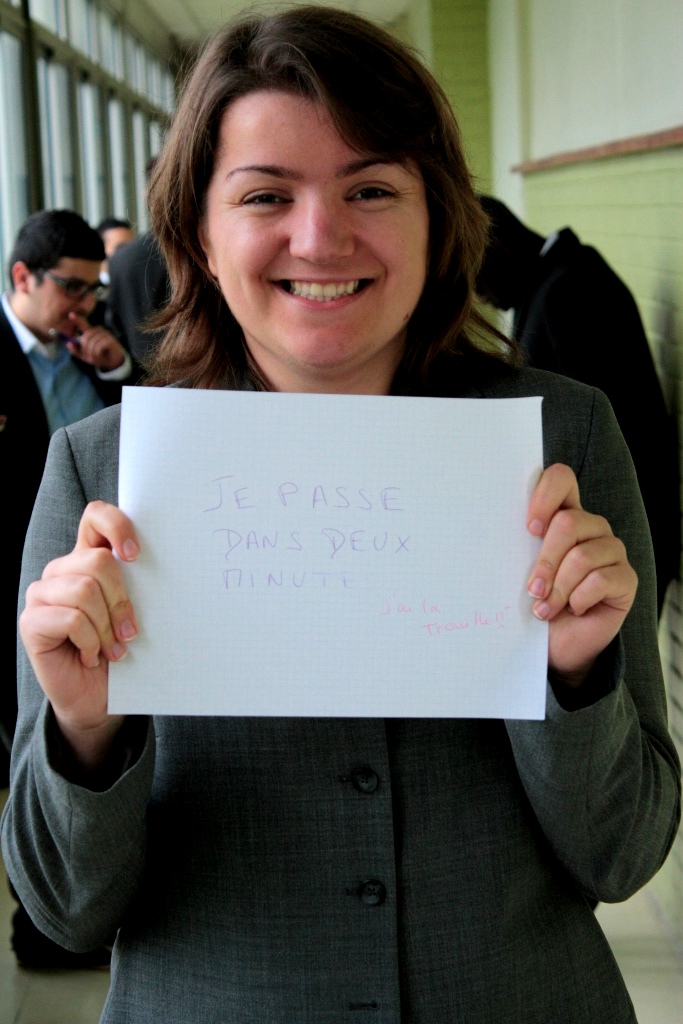 JE PASSE
DANS DEUX
MINUTE
j'ai la
Trouille!!